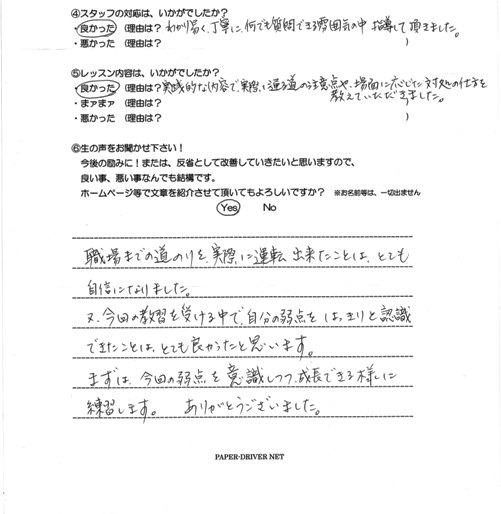 ④スタッフの対応は、いかがでしたか？
・良かった（理由は？ わかり易く、丁寧に、何でも質問できる雰囲気の中 指導して頂きました。
・悪かった（理由は？ ）
⑤レッスン内容は、いかがでしたか？
・良かった（理由は？ 実践的な内容で実際に通る道の注意点や、場面に応じた対処の仕方を
教えていただきました。
・まァまァ（理由は？
・悪かった（理由は？ ）
⑥生の声をお聞かせ下さい！
今後の励みに！または、反省として改善していきたいと思いますので、
良い事、悪い事なんでも結構です。
ホームページ等で文章を紹介させて頂いてもよろしいですか？ ※お名前等は、一切出ません
Yes No
職場までの道のりを、実際に運転出来たことは、とても
自信になりました。
又、今回の教習を受ける中で、自分の弱点をはっきりと認識
できたことは、とても良かったと思います。
まずは、今回の弱点を意識しつつ、成長できる様に
練習します。 ありがとうございました。
PAPER-DRIVER NET